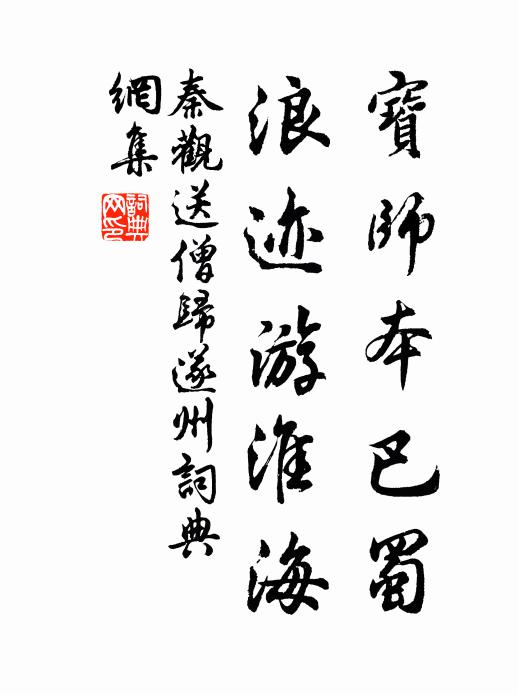 寶師本巴蜀
浪迹游淮海
秦觀送僧歸遂州詞典
網集
詞典網印